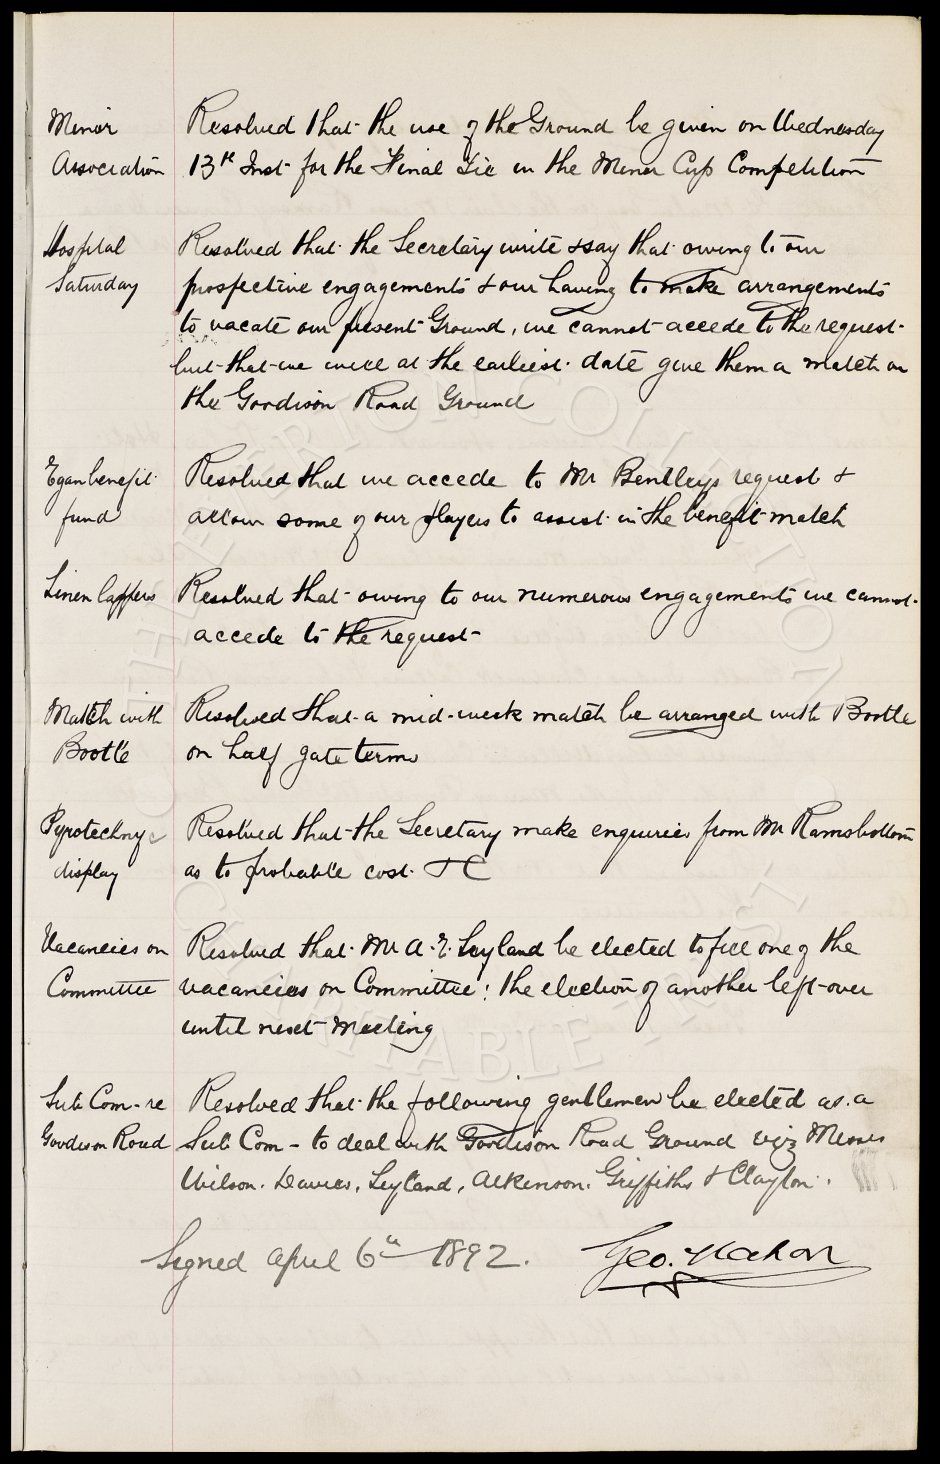 Minor Resolved that the use of the Ground be given on Wednesday
Association 13th Inst for the Final Tie in the Minor Cup Competition
Hospital Resolved that the Secretary write & say that owing to our
Saturday prospective engagements & our having to make arrangements
to vacate our present Ground, we cannot accede to the request
but that we will at the earliest date give them a match on
the Goodison Road Ground
Egan benefit Resolved that we accede to Mr Bentleys request &
fund allow some of our players to assist in the benefit match
Linen lappers Resolved that owing to our numerous engagements we cannot
accede to the request
Match with Resolved that a mid-week match be arranged with Bootle
Bootle on half gate terms
Pyrotechnyc Resolved that the Secretary make enquiries from Mr Ramsbottom
display as to probable cost &C
Vacancies on Resolved that Mr A. E. Leyland be elected to fill one of the
Committee vacancies on Committee: the election of another left over
until next Meeting
Sub Com - re Resolved that the following gentlemen be elected as a
Goodison Road Sub Com - to deal with Goodison Road Ground viz Messrs
Wilson. Davies, Leyland, Atkinson. Griffiths & Clayton.
Signed April 6th 1892. Geo. Mahon
EVERTON COLLECTION
CHARITABLE TRUST